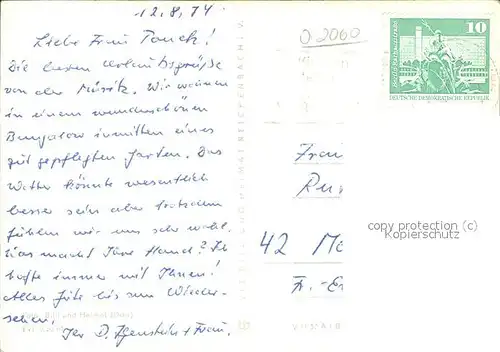 12.8.74
Liebe Frau Tauch!
Die besten Urlaubsgrüße
von der Müritz. Wir wohnen
in einem wunderschönen
Bungalow inmitten eines
gut gepflegten Garten. Das
Wetter könnte wesentlich
besser sein aber trotzdem
fühlen wir uns sehr wohl.
Was macht Ihre Hand? Ich
hoffe immer mit Ihnen!
Alles Gute bis zum Wieder-
sehen.
Ihr D. + Frau.
O 2060
10
DEUTSCHE DEMOKRATISCHE REPUBLIK
Frau
42
Fr.-
copyright protection (c)
Kopierschutz
Bild und Heimat